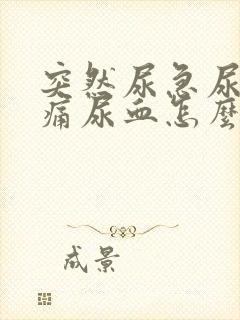 突然尿急尿
痛尿血怎麼
成景